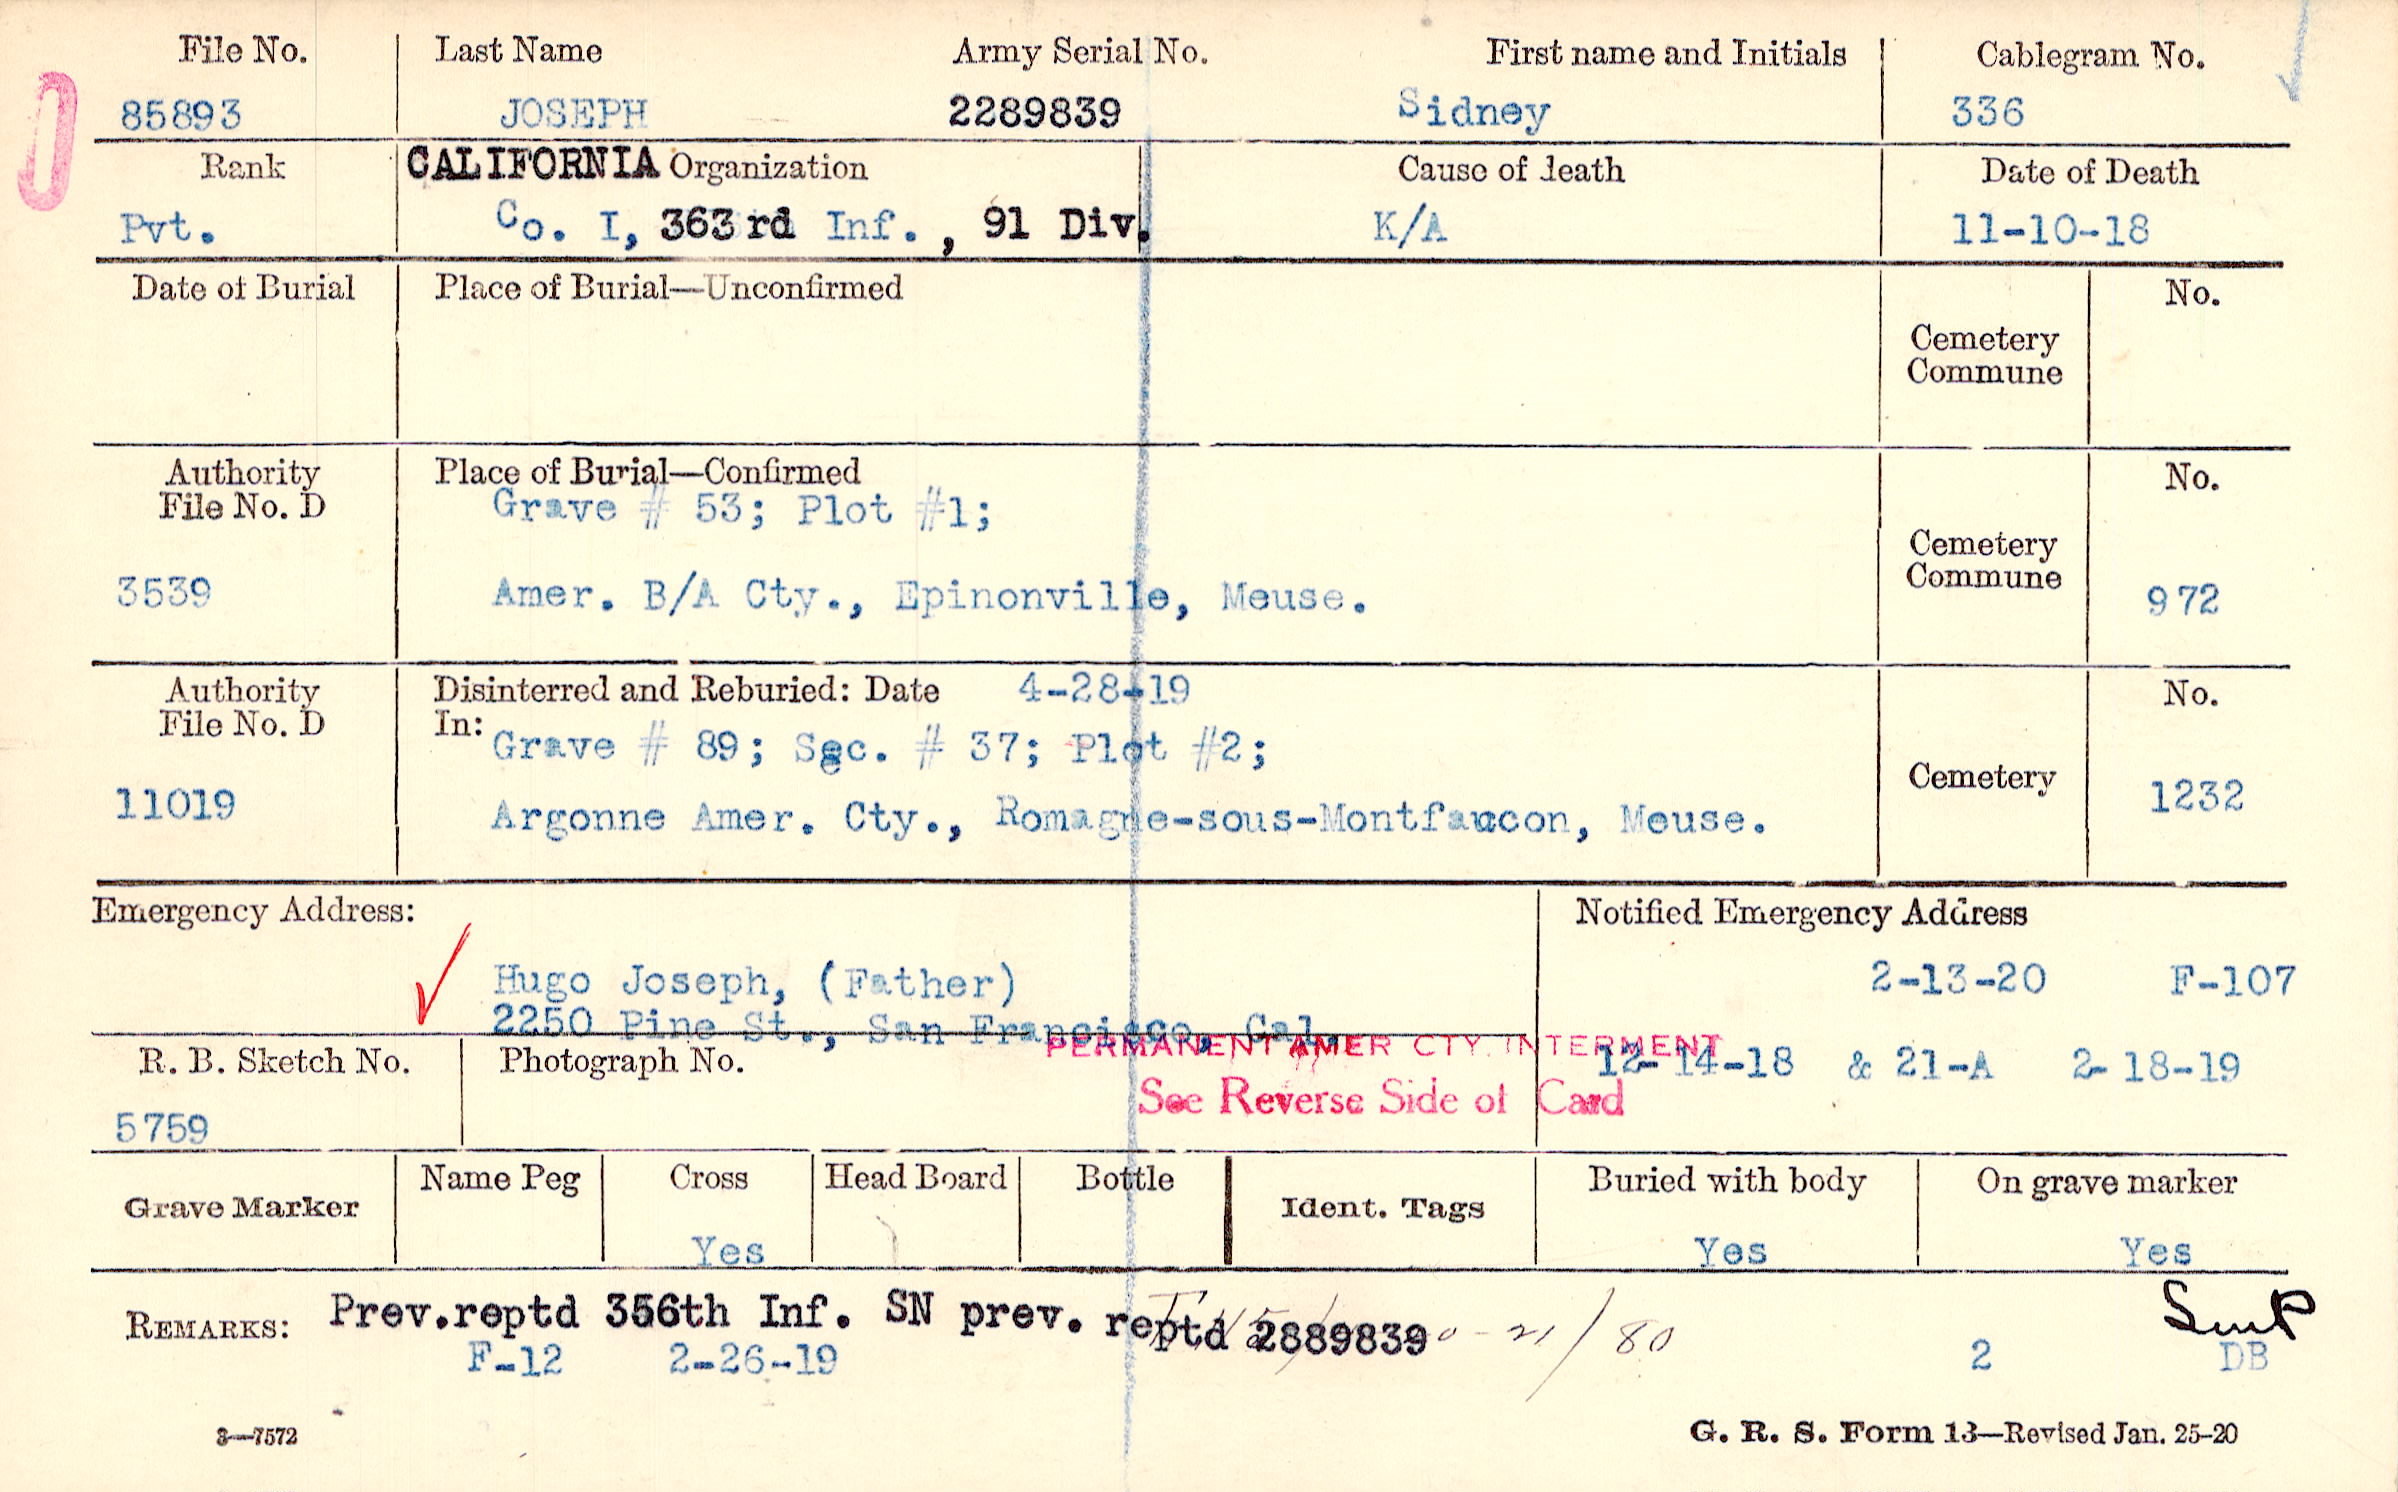 File No. Last Name Army Serial No. First name and Initials Cablegram No.
85893 JOSEPH 2289839 Sidney 336
Rank CALIFORNIA Organization Cause of death Date of Death
Pvt. Co. I, 363rd Inf., 91 Div. K/A 11-10-18
Date of Burial Place of Burial—Unconfirmed No.
Cemetery
Commune
Authority Place of Burial—Confirmed No.
File No. D Grave # 53; Plot #1;
Cemetery
Commune
3539 Amer. B/A Cty., Epinonville, Meuse. 972
Authority Disinterred and Reburied: Date 4-28-19 No.
File No. D In: Grave # 89; Sec. # 37; Plot #2;
Cemetery
11019 Argonne Amer. Cty., Romagne-sous-Montfaucon, Meuse. 1232
Emergency Address: Notified Emergency Address
Hugo Joseph, (Father) 2-13-20 F-107
2250 Pine St., San Francisco, Cal.
PERMANENT AMER CTY. INTERMENT
R. B. Sketch No. Photograph No. 12-14-18 & 21-A 2-18-19
See Reverse Side of Card
5759
Grave Marker Name Peg Cross Head Board Bottle Ident. Tags Buried with body On grave marker
Yes Yes Yes
REMARKS: Prev.reptd 356th Inf. SN prev. reptd 2889839 80
SmP
F-12 2-26-19 2 DB
3—7572 G. R. S. Form 13—Revised Jan. 25-20